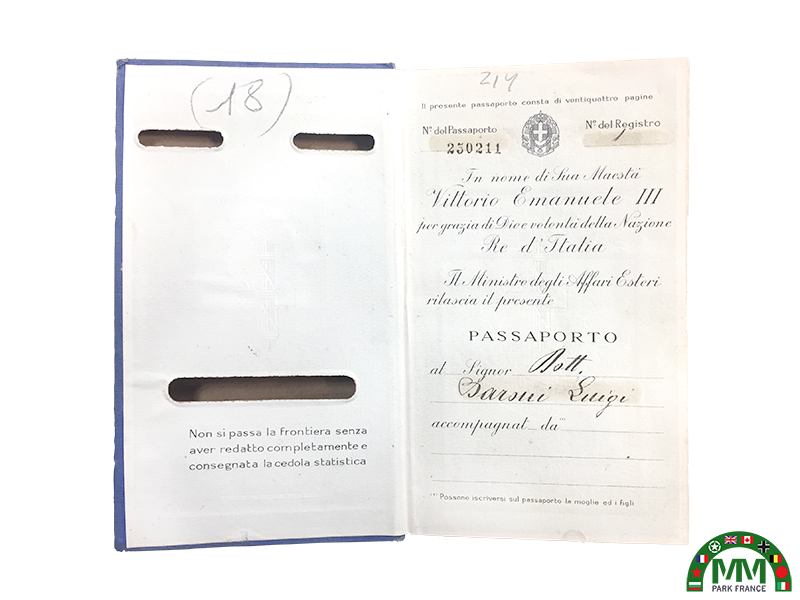 (18)
Non si passa la frontiera senza
aver redatto completamente e
consegnata la cedola statistica
214
Il presente passaporto consta di ventiquattro pagine
Nº del Passaporto
250211
Nº del Registro
In nome di Sua Maestà
Vittorio Emanuele III
per grazia di Dio e volontà della Nazione
Re d'Italia
Il Ministro degli Affari Esteri
rilascia il presente
PASSAPORTO
al Signor Dott.
Luigi
accompagnat da (1)
(1) Possono iscriversi sul passaporto la moglie ed i figli
MM
PARK FRANCE